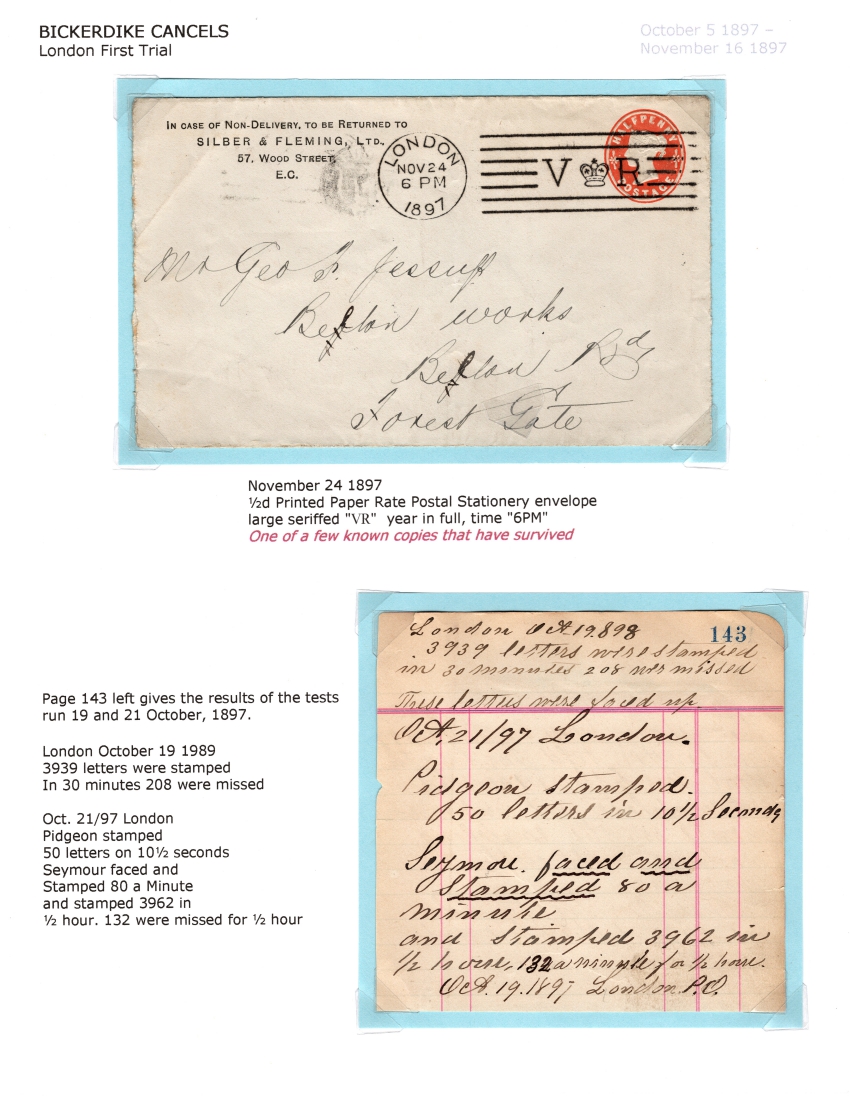 BICKERDIKE CANCELS
London First Trial
October 5 1897 –
November 16 1897
IN CASE OF NON-DELIVERY, TO BE RETURNED TO
SILBER & FLEMING, LTD.,
57, WOOD STREET,
E.C.
LONDON
NOV 24
6 PM
1897
V R
HALFPENNY
POSTAGE
Mr Geo F. Jessup
Belton works
Belton Rd
Forest Gate
November 24 1897
½d Printed Paper Rate Postal Stationery envelope
large seriffed "VR" year in full, time "6PM"
One of a few known copies that have survived
Page 143 left gives the results of the tests
run 19 and 21 October, 1897.
London October 19 1989
3939 letters were stamped
In 30 minutes 208 were missed
Oct. 21/97 London
Pidgeon stamped
50 letters on 10½ seconds
Seymour faced and
Stamped 80 a Minute
and stamped 3962 in
½ hour. 132 were missed for ½ hour
143
London Oct. 19. 898
3939 letters were stamped
in 30 minutes 208 were missed
These letters were faced up.
Oct, 21/97 London.
Pidgeon stamped.
50 letters in 10½ Seconds
Seymou. faced and
Stamped 80 a
minute
and stamped 3962 in
½ hour, 132 a minute for ½ hour.
Oct. 19. 1897 London P.O.